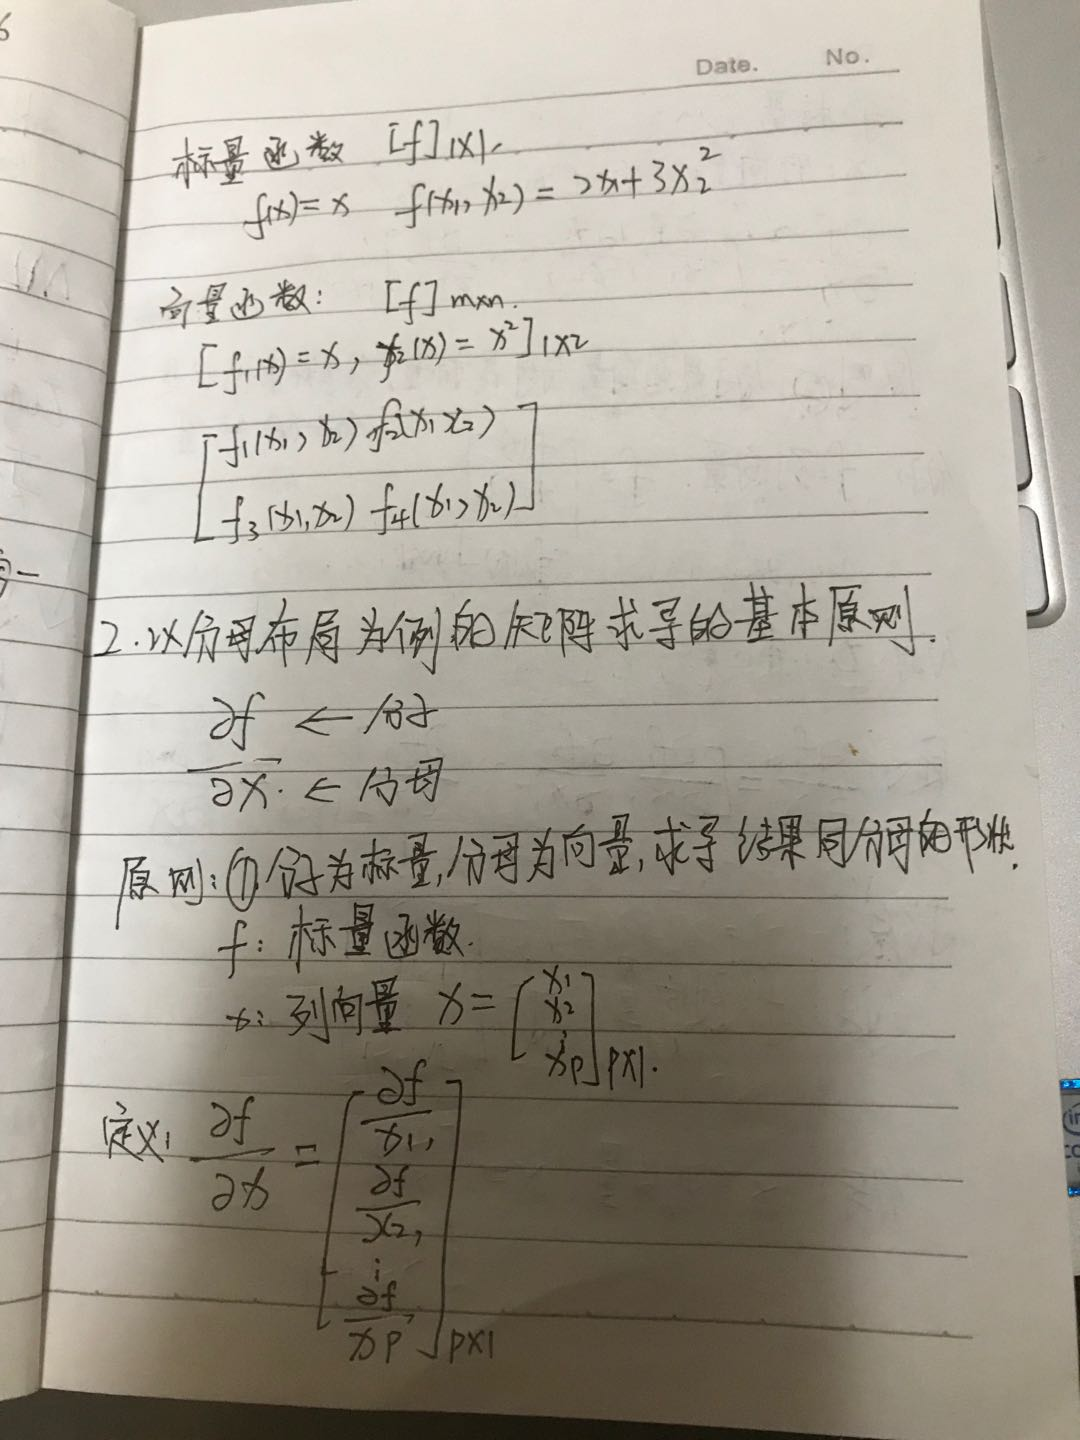 Date. No.
标量函数 [f]1×1.
f(x)=x f(x₁, x₂) = 2x₁+3x₂²
向量函数: [f]m×n.
[f₁(x)=x, f₂(x)=x²]1×2
[f₁(x₁, x₂), f₂(x₁ x₂)
f₃(x₁,x₂) f₄(x₁, x₂)]
2.以分母布局为例的矩阵求导的基本原则.
∂f ← 分子
∂x. ← 分母
原则:① 分子为标量,分母为向量,求导结果同分母的形状.
f: 标量函数.
x: 列向量 x = [x₁ x₂ ⋮ xp]p×1.
定义: ∂f/∂x = [∂f/x₁, ∂f/x₂, ⋮ ∂f/xp]p×1